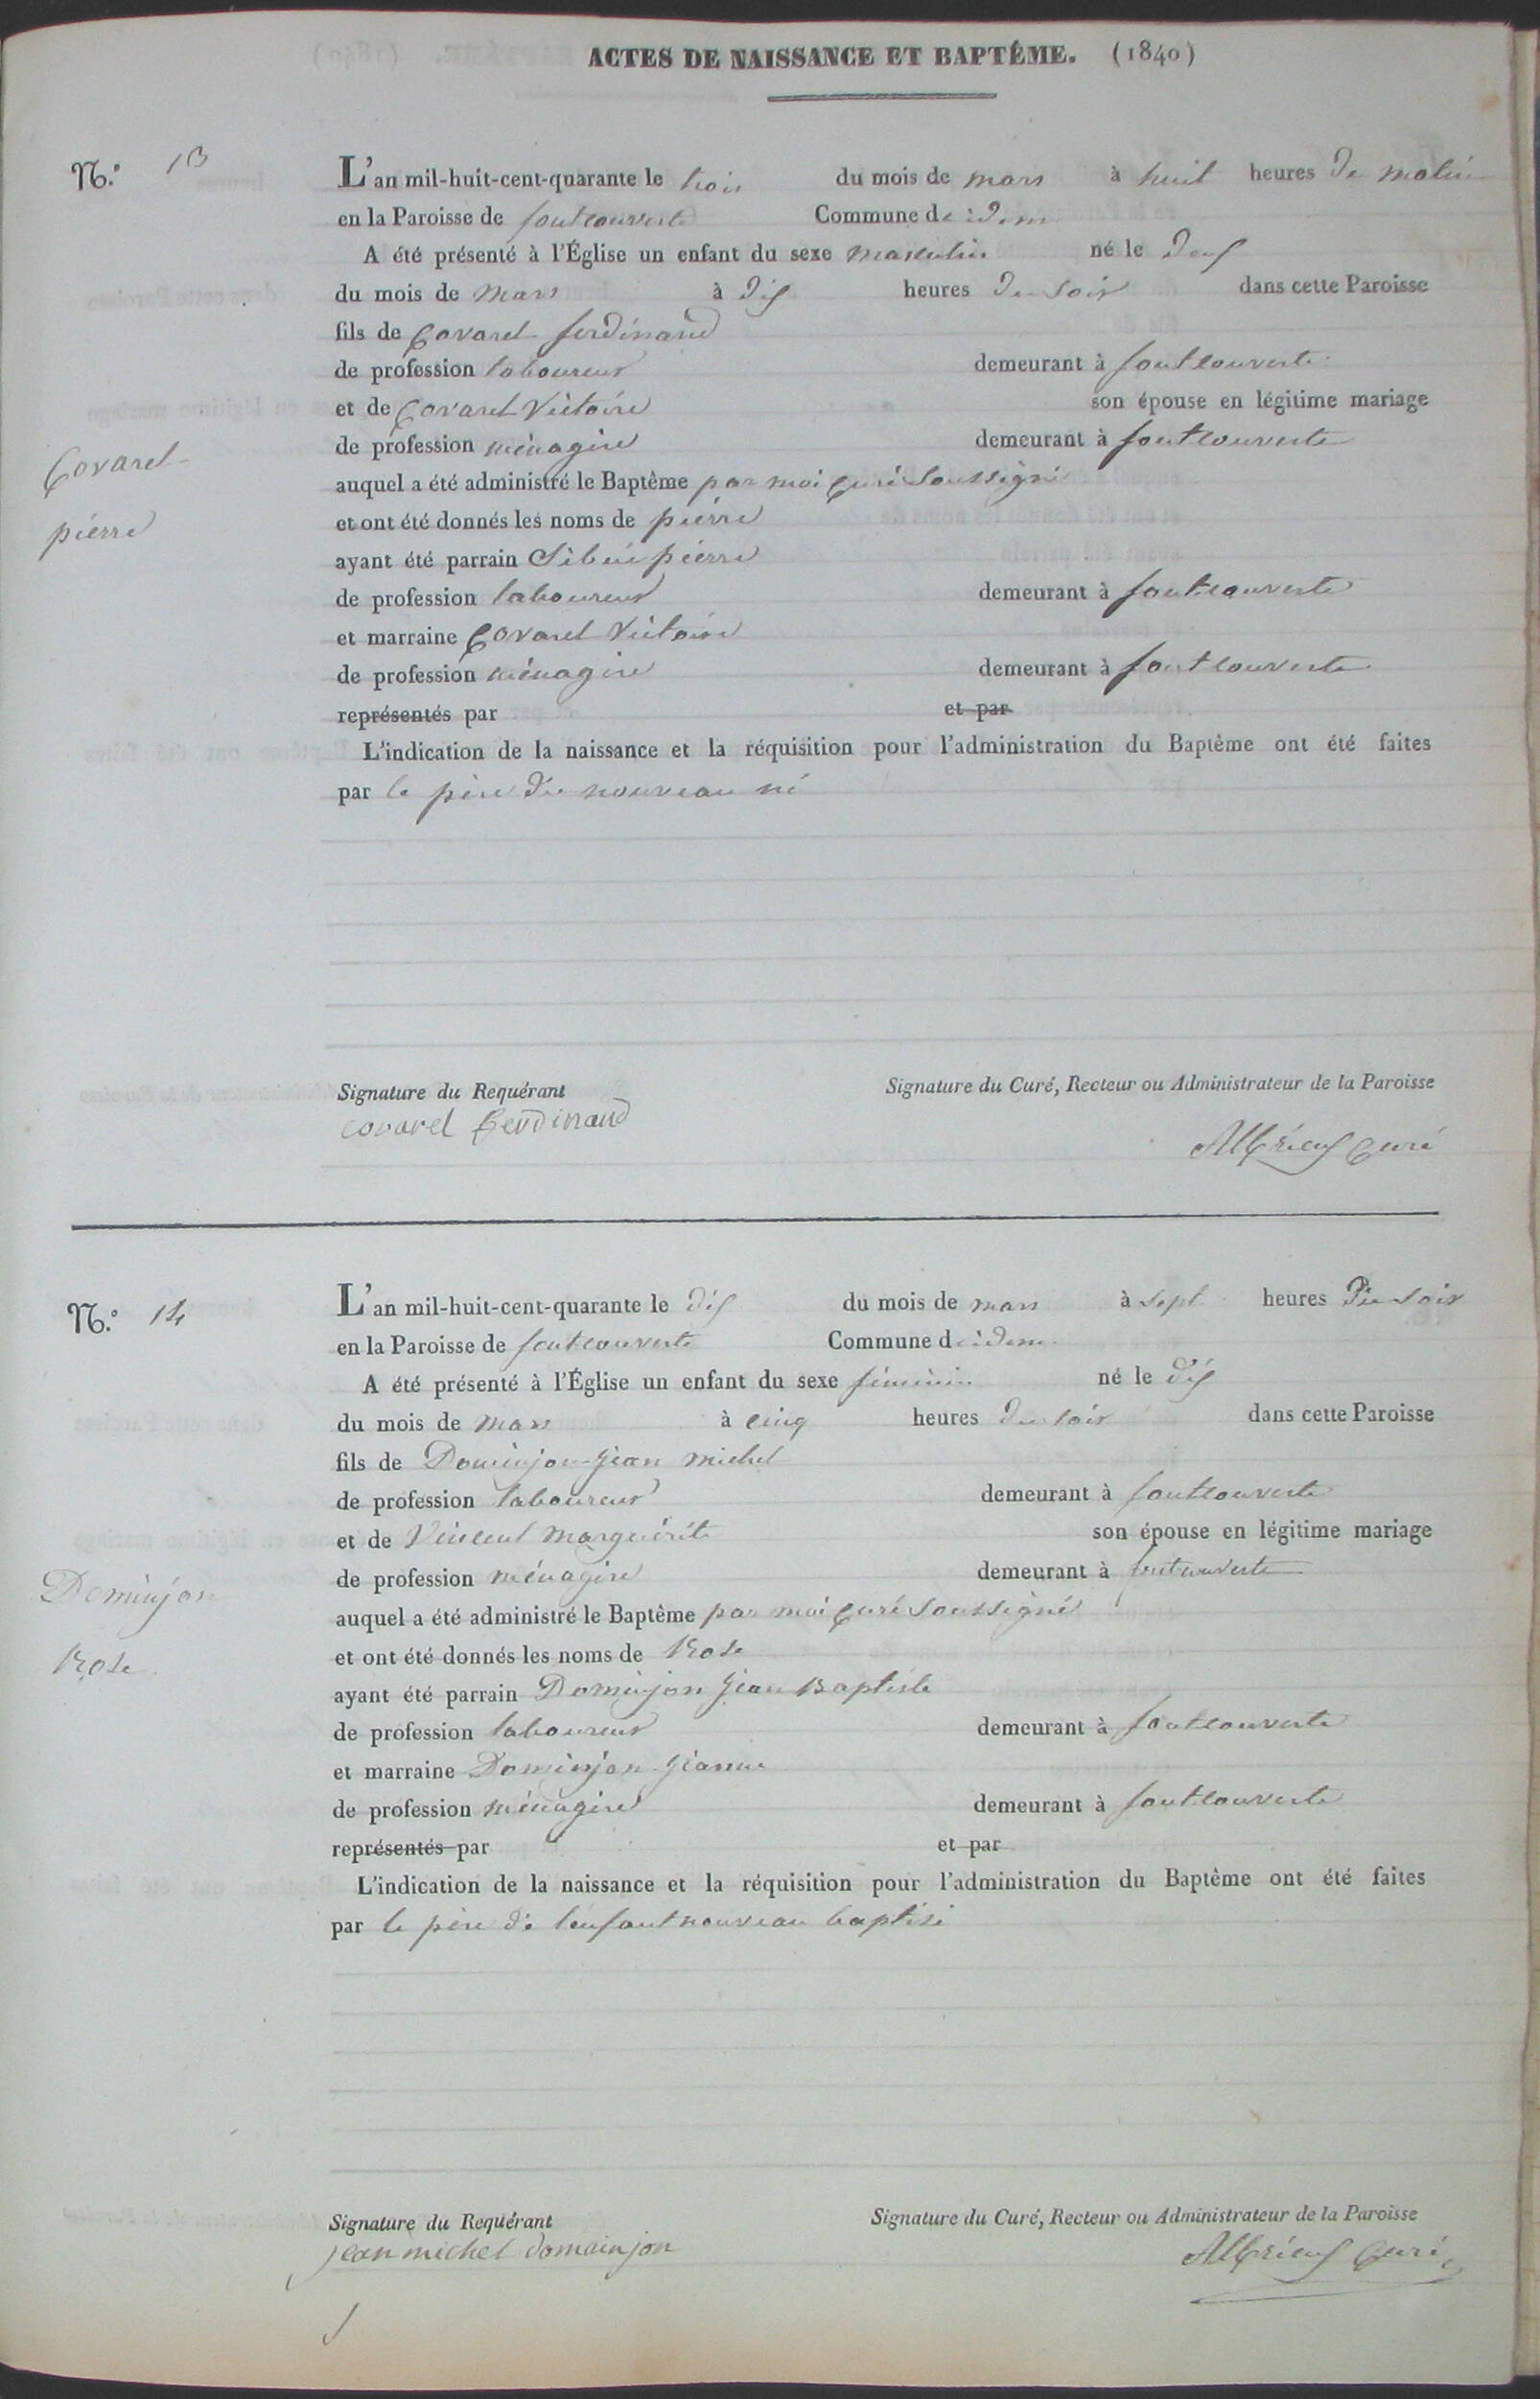 ACTES DE NAISSANCE ET BAPTÊME. (1840)
N.° 13
L'an mil-huit-cent-quarante le trois du mois de mars à huit heures du matin
en la Paroisse de fontcouverte Commune de idem
A été présenté à l'Église un enfant du sexe masculin né le deux
du mois de mars à dix heures du soir dans cette Paroisse
fils de Covarel ferdinand
de profession laboureur demeurant à fontcouverte
et de Covarel Victoire son épouse en légitime mariage
Covarel
de profession ménagère demeurant à fontcouverte
auquel a été administré le Baptême par moi curé soussigné
pierre
et ont été donnés les noms de pierre
ayant été parrain Sibué pierre
de profession laboureur demeurant à fontcouverte
et marraine Covarel Victoire
de profession ménagère demeurant à fontcouverte
représentés par et par
L'indication de la naissance et la réquisition pour l'administration du Baptême ont été faites
par le père du nouveau né
Signature du Requérant Signature du Curé, Recteur ou Administrateur de la Paroisse
covarel ferdinand Albrieux curé
N.° 14
L'an mil-huit-cent-quarante le dix du mois de mars à sept heures du soir
en la Paroisse de fontcouverte Commune d idem
A été présenté à l'Église un enfant du sexe féminin né le dix
du mois de mars à cinq heures du soir dans cette Paroisse
fils de Dominjon jean michel
de profession laboureur demeurant à fontcouverte
et de Vincent marguérite son épouse en légitime mariage
Dominjon
de profession ménagère demeurant à fontcouverte
auquel a été administré le Baptême par moi curé soussigné
Rose
et ont été donnés les noms de Rose
ayant été parrain Dominjon jean Baptiste
de profession laboureur demeurant à fontcouverte
et marraine Dominjon jeanne
de profession ménagère demeurant à fontcouverte
représentés par et par
L'indication de la naissance et la réquisition pour l'administration du Baptême ont été faites
par le père de l'enfant nouveau baptisé
Signature du Requérant Signature du Curé, Recteur ou Administrateur de la Paroisse
jean michel domainjon Albrieux curé